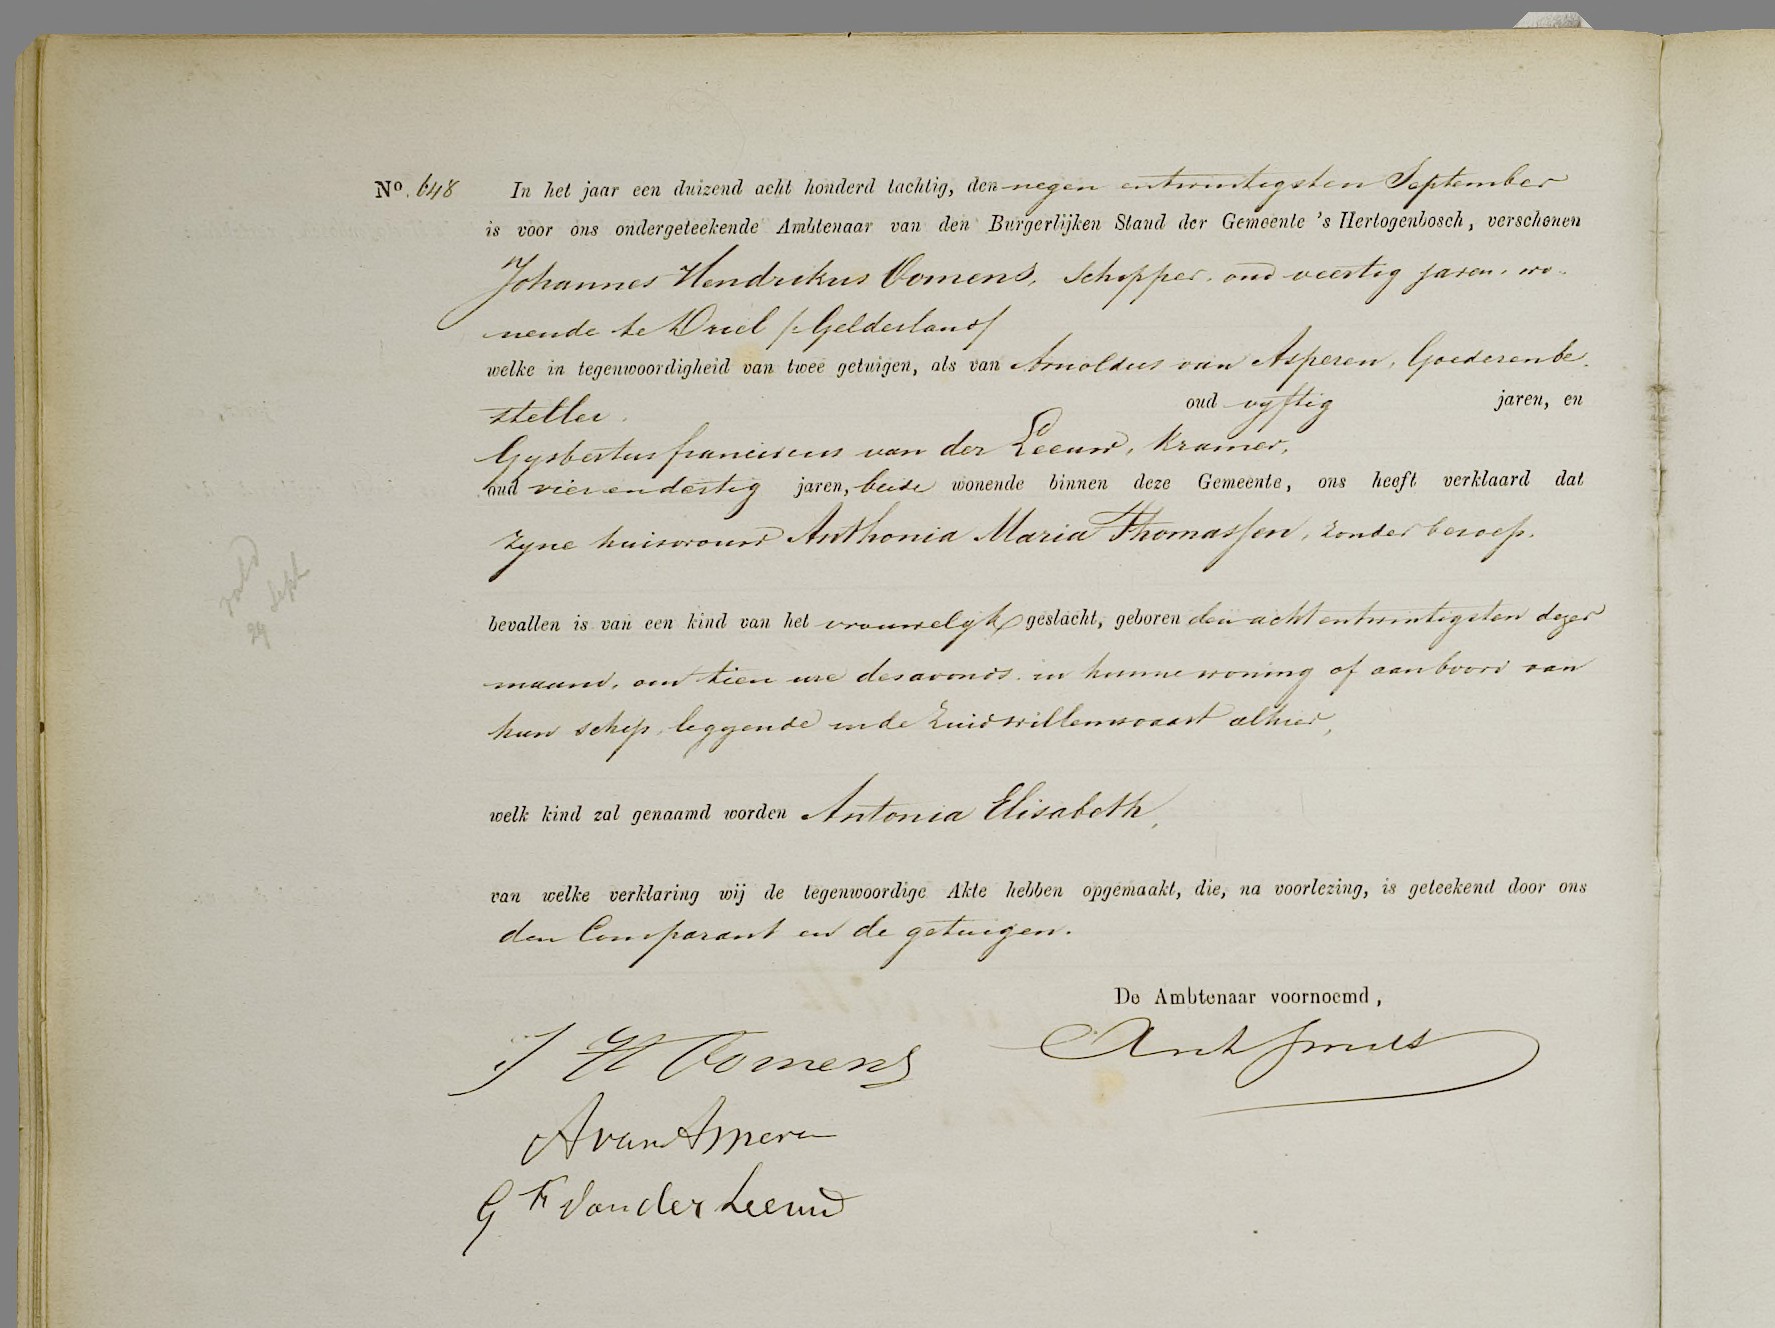 No. 648 In het jaar een duizend acht honderd tachtig, den negen entwintigsten September
is voor ons ondergeteekende Ambtenaar van den Burgerlijken Stand der Gemeente 's Hertogenbosch, verschenen
Johannes Hendrikus Oomens, Schipper, oud veertig jaren, wo-
nende te Driel /:Gelderland/
welke in tegenwoordigheid van twee getuigen, als van Arnoldus van Asperen, Goederenbe-
steller. oud vyftig jaren, en
Gysbertus franciscus van der Leeuw, Kramer,
oud vier en dertig jaren, beide wonende binnen deze Gemeente, ons heeft verklaard dat
zyne huisvrouw Anthonia Maria Thomassen, zonder beroep.
bevallen is van een kind van het vrouwelyk geslacht, geboren den acht entwintigsten dezer
maand, om tien ure desavonds in hunne woning of aan boord van
hun schip, leggende in de Zuidwillemsvaart alhier,
welk kind zal genaamd worden Antonia Elisabeth,
van welke verklaring wij de tegenwoordige Akte hebben opgemaakt, die, na voorlezing, is geteekend door ons
den Comparant en de getuigen.
De Ambtenaar voornoemd,
J H Oomens
Ant Smits
A van Asperen
G F Van der Leeuw
29 Sept